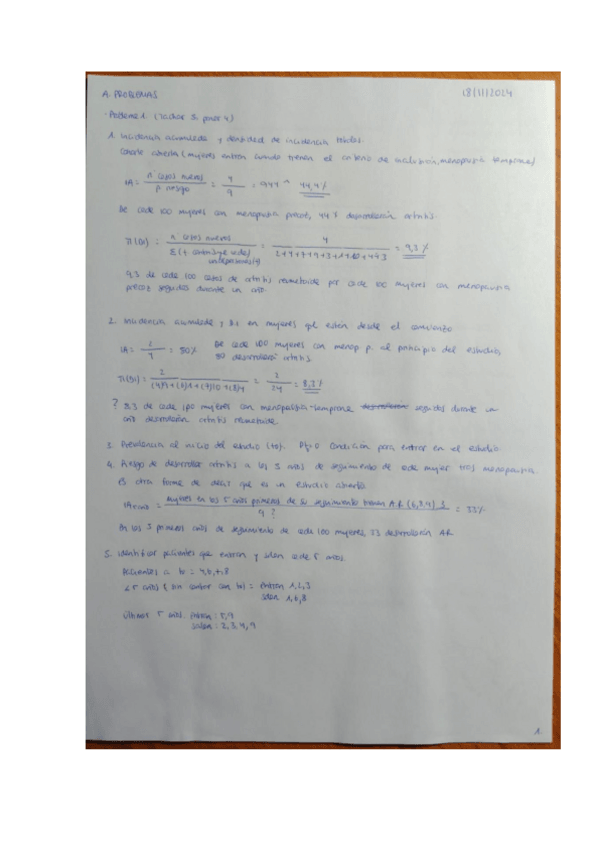 A. PROBLEMAS 18/11/2024
· Problema 1.
1. Incidencia acumulada y densidad de incidencia totales.
Cohorte (mujeres entran cuando tienen el criterio de menopausia temprana)
IA = n casos nuevos / p. riesgo = 4 / 9 = 44,4%
De cada 100 mujeres con menopausia precoz, 44 desarrollarán artritis.
n casos nuevos / Σ (t = 4 = 9,3%
9,3 de cada 100 casos de artritis reumatoide por cada 100 mujeres con menopausia
precoz seguidas durante un año.
2. Incidencia acumulada y en mujeres que están desde el comienzo
IA = 2 / = 50% De cada 100 mujeres con menop p. al principio del estudio,
50 desarrollarán artritis.
= 2 / = 2 / 24 = 8,3%
? 8.3 de cada 100 mujeres con menopausia temprana seguidas durante un
año desarrollarán artritis reumatoide.
3. Prevalencia al inicio del estudio (t0). condición para entrar en el estudio
4. Riesgo de desarrollar artritis a los 5 años de seguimiento de cada mujer tras menopausia.
Es otra forma de decir que es un estudio abierto.
mujeres en los 5 años primeros de su seguimiento tienen A.R (6,3,4) 3 / 9 ? = 33%
En los 5 primeros años de seguimiento de cada 100 mujeres, 33 desarrollarán AR
5. Identificar pacientes que entran y salen cada 5 años.
Pacientes a t0 = 4,6,7,8
< 5 años (sin contar con t0) = entran 1,2,3
salen 1,6,8
Últimos 5 años. entran: 5,9
salen: 2,3,4,9
1.